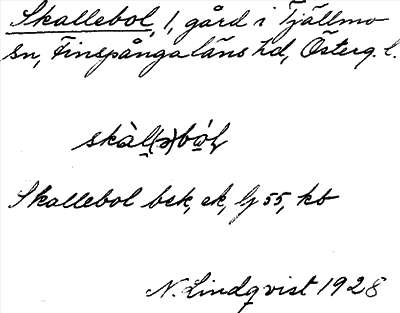 Skallebol, 1, gård i Tjällmo
sn, Finspånga läns hd, Österg. l.
skàl(ə)bόl
Skallebol bsk, ek, lj 55, kb
N. Lindqvist 1928